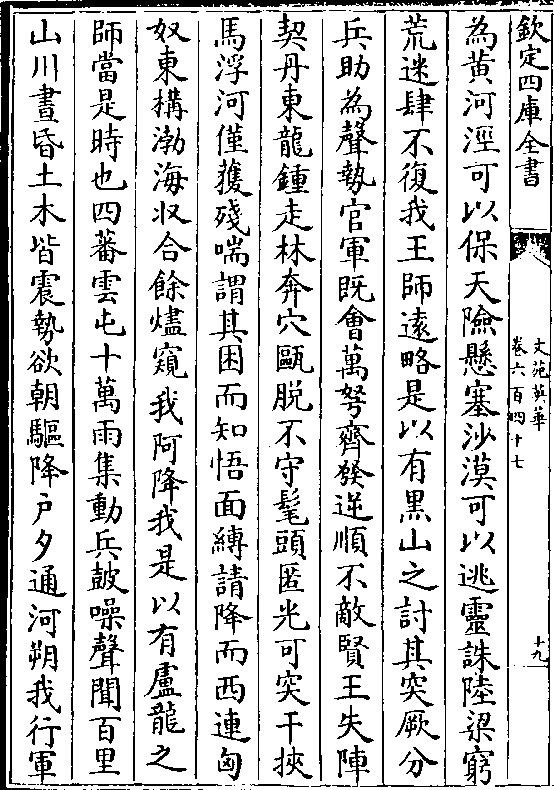 欽定四庫全書
文苑英華
卷六百四十七
十九
為黄河溼可以保天險懸塞沙漠可以逃靈誅陸梁窮
荒迷肆不復我王師逺略是以有黑山之討其突厥分
兵助為聲埶官軍既㑹萬弩齊發逆順不敵賢王失陣
契丹東龍鍾走林奔穴甌脱不守髦頭匿光可突干挾
馬浮河僅獲殘喘謂其困而知悟面縛請降而西連匈
奴東構渤海収合餘燼窺我阿降我是以有盧龍之
師當是時也四蕃雲屯十萬雨集動兵鼓噪聲聞百里
山川晝昏土木皆震勢欲朝驅降户夕通河朔我行軍